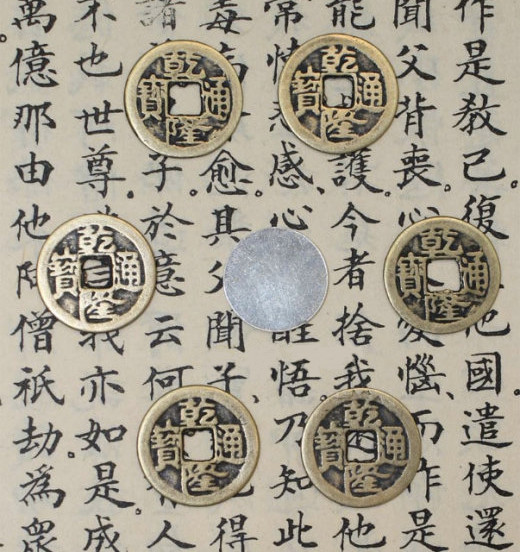 作是教已復他國遣使還
聞父背喪。心憂惱、而作是
能護。今者捨我他
常懷悲感、心醒悟。乃知此
毒愈。其父聞子、得
諸子。於意云何人
不也。世尊。我亦如是。成
萬億那由他阿僧祇劫。爲衆
乾隆通寶
乾隆通寶
乾隆通寶
乾隆通寶
乾隆通寶
乾隆通寶